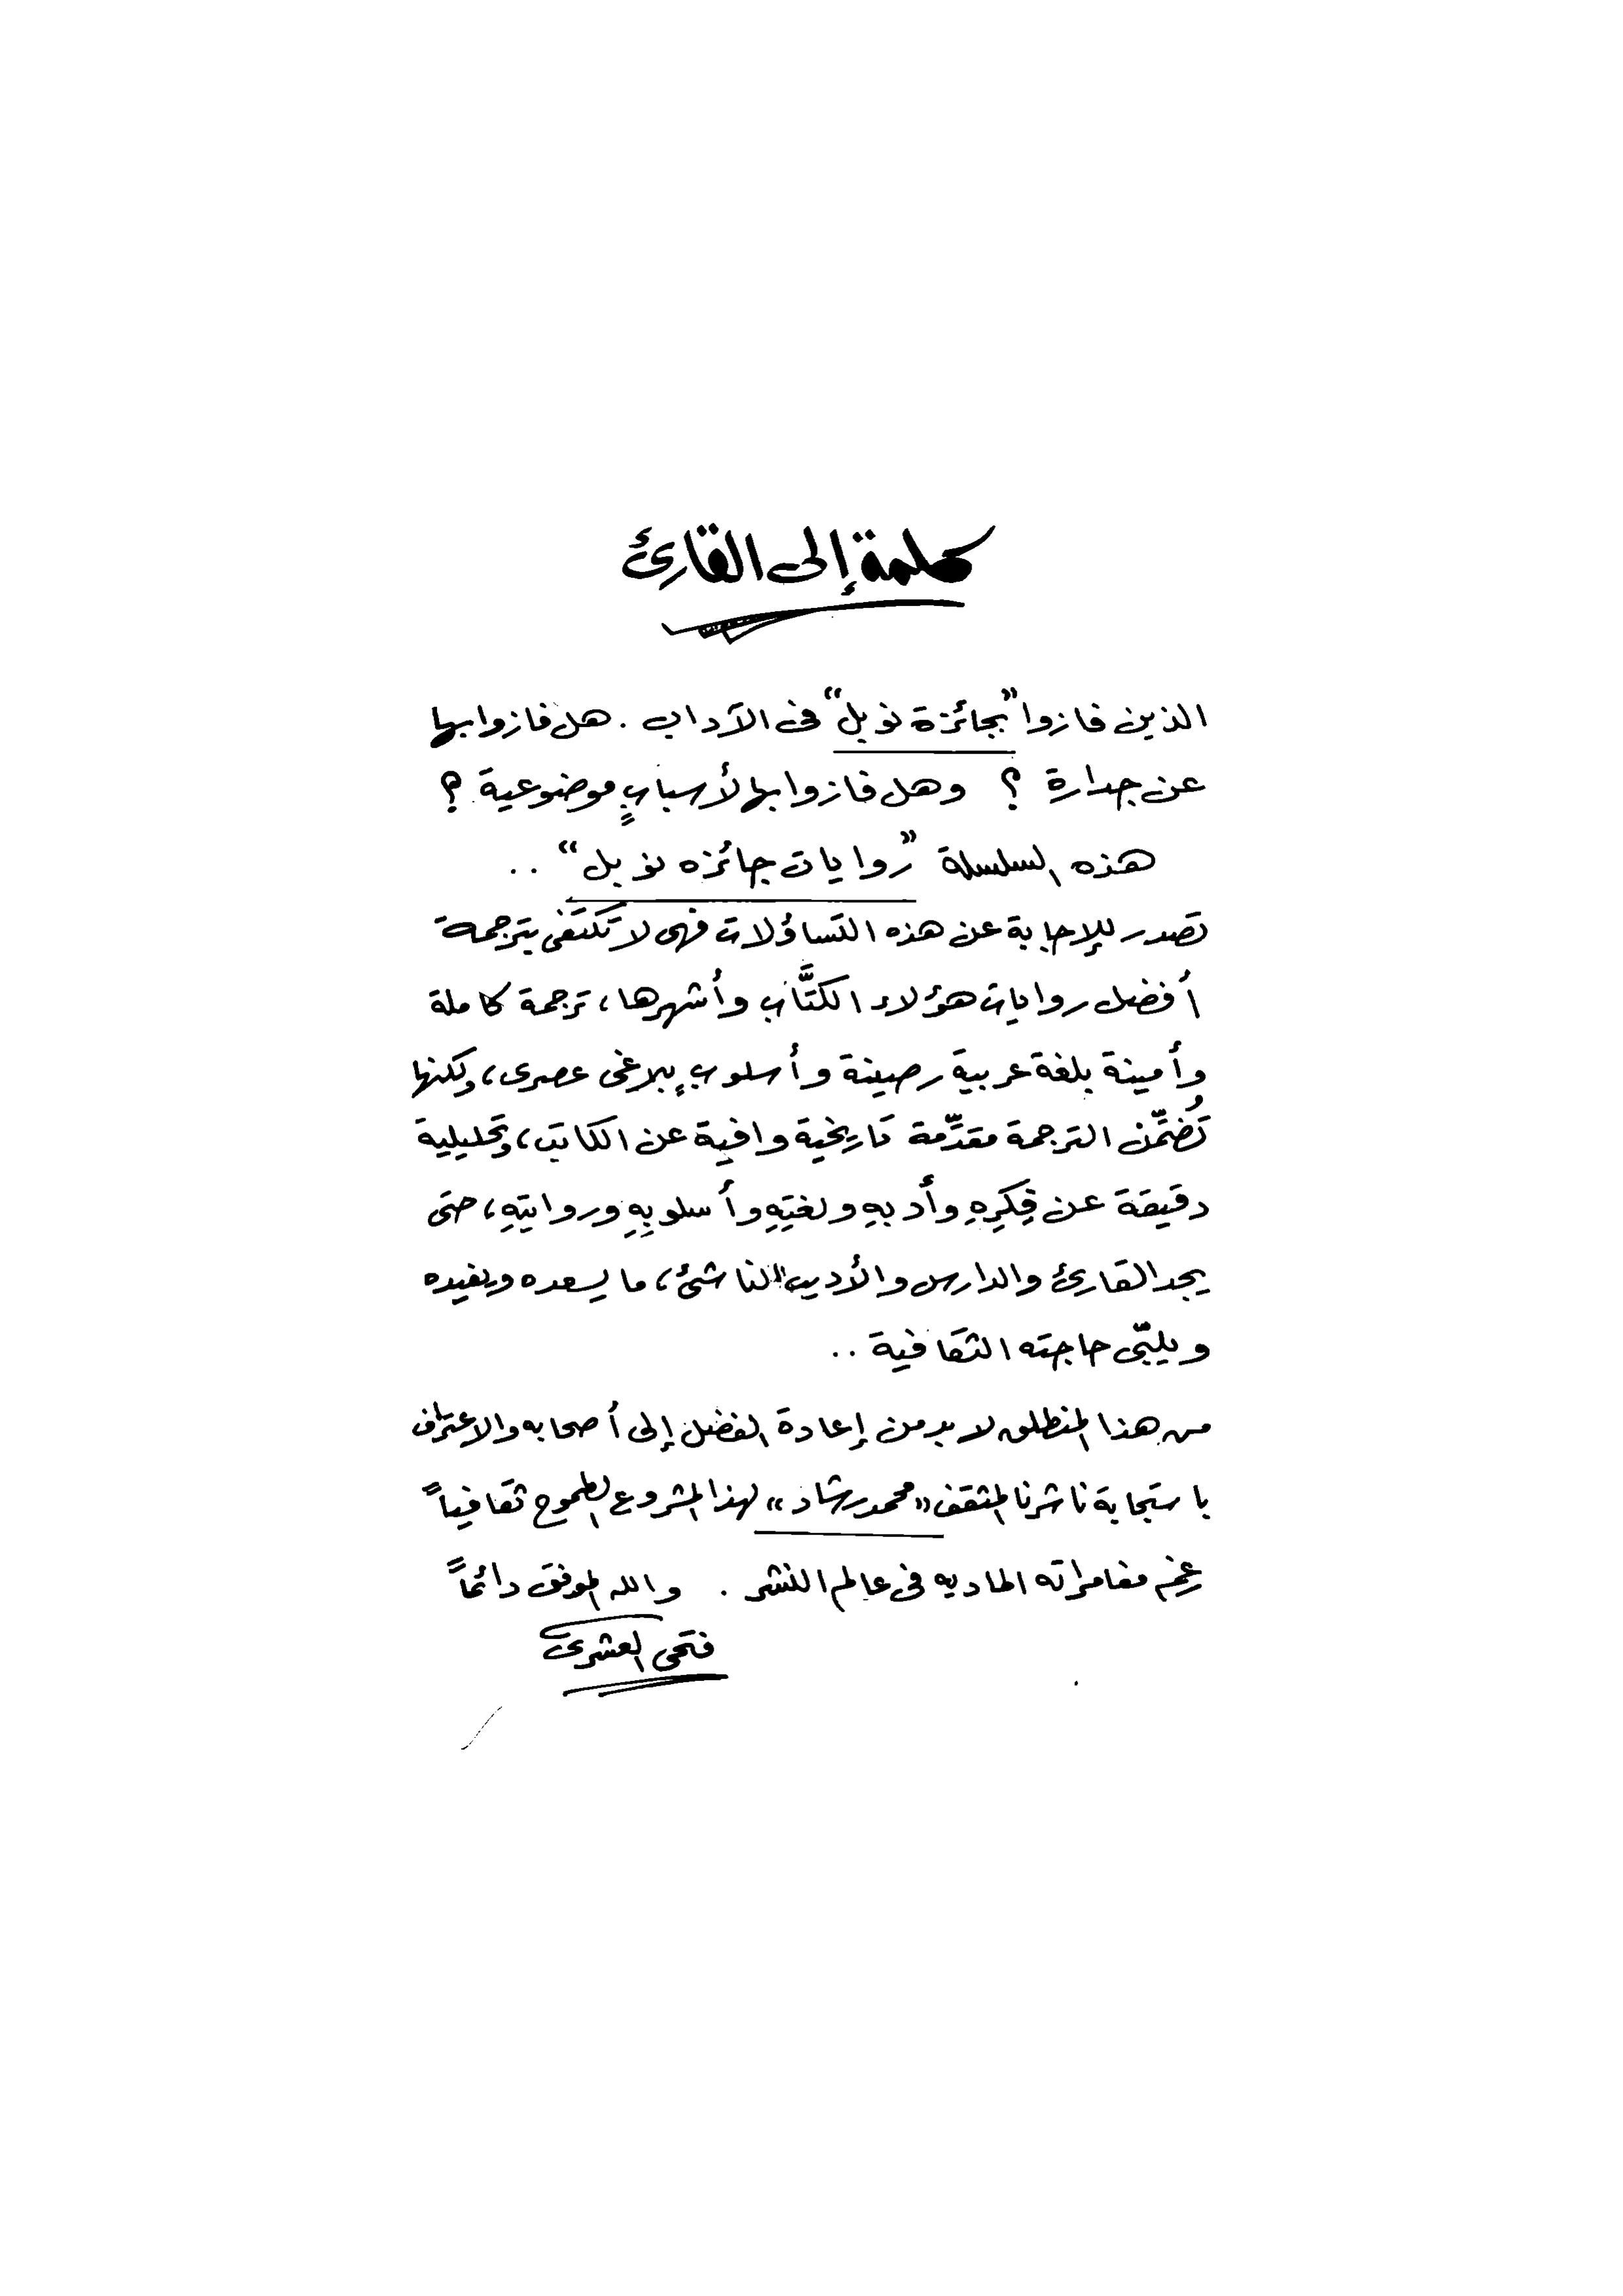 كلمة إلى القارئ
الذين فازوا "بجائزة نوبل" فى الآداب . هل فازوا بها
عن جدارة ؟ وهل فازوا بها لأسبابٍ موضوعية ؟
هذه السلسلة "روايات جائزه نوبل" ..
تصدر للإجابة عن هذه التساؤلات فهى لا تكتفى بترجمة
أفضل روايات هؤلاء الكتَّاب وأشهرها، ترجمة كاملة
وأمينة بلغة عربية رصينة وأسلوبٍ بلاغى عصرى، ولكنها
تُضمّن الترجمة مقدّمة تاريخية وافية عن الكاتب، وتحليلية
دقيقة عن فِكرِهِ وأدبهِ ولغتِهِ وأسلوبِهِ وروايتِهِ، حتى
يجد القارئ والدارس والأديب الناشئ، ما يسعده ويفيده
ويلبّى حاجته الثقافية ..
من هذا المنطلق لابد من إعادة الفضل إلى أصحابه والاعتراف
باستجابة ناشرنا المثقف «محمد رشاد» لهذا المشروع الطموح ثقافياً
رغم مغامراته الماديه فى عالم النشر . والله الموفق دائماً
فتحى العشرى